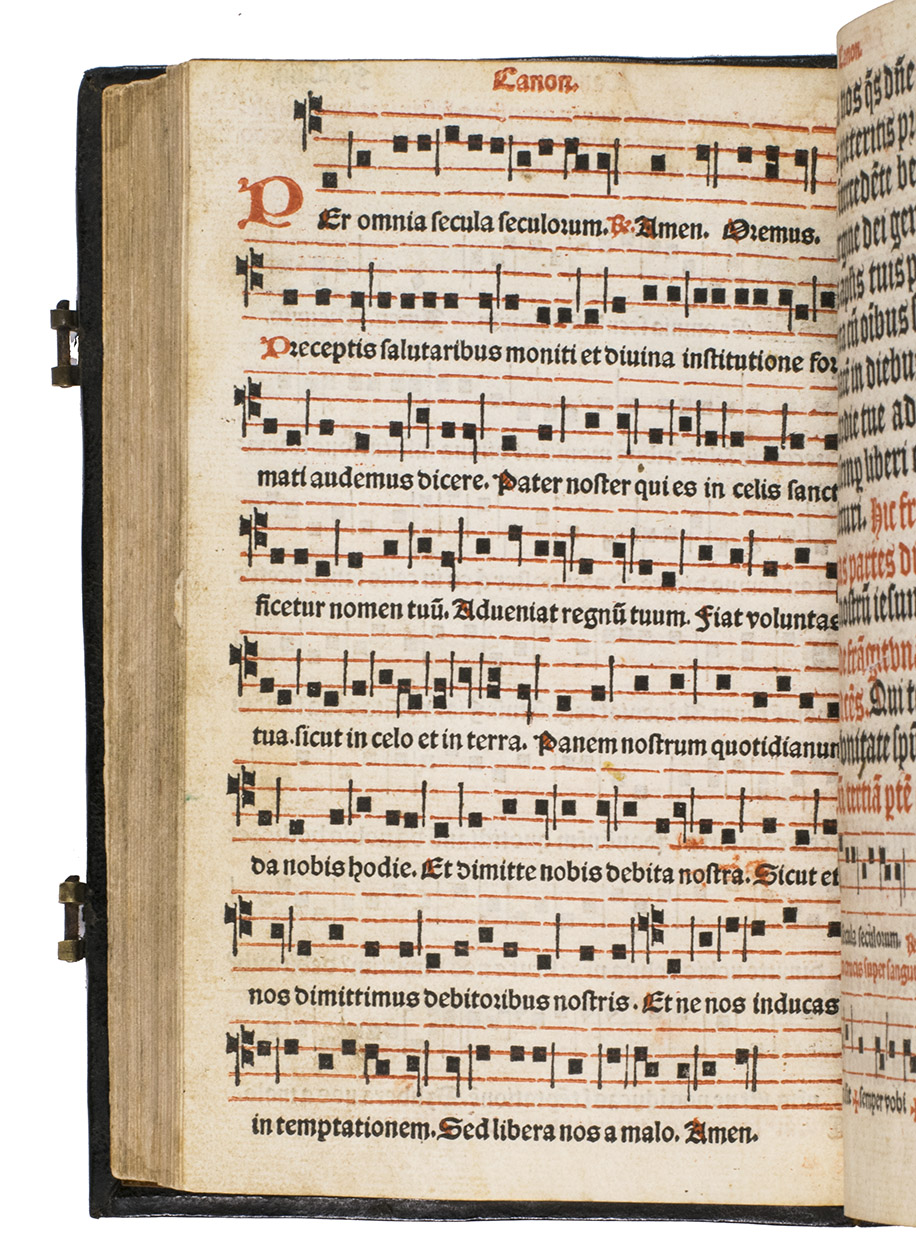 Canon.
PEr omnia secula seculorum. ℟. Amen. Oremus.
Preceptis salutaribus moniti et diuina institutione for
mati audemus dicere. Pater noster qui es in celis sanct
ficetur nomen tuū. Adueniat regnū tuum. Fiat voluntas
tua. sicut in celo et in terra. Panem nostrum quotidianum
da nobis hodie. Et dimitte nobis debita nostra. Sicut et
nos dimittimus debitoribus nostris. Et ne nos inducas
in temptationem. Sed libera nos a malo. Amen.
Canon.
nos q̄s dn̄e
dei gen
tuis p
oībus
in diebu
tue ad
liberi
Hic fr
partes di
iesum
Qui t
tertiā ptē
secula seculorum.
crucis super sangui
semper vobi